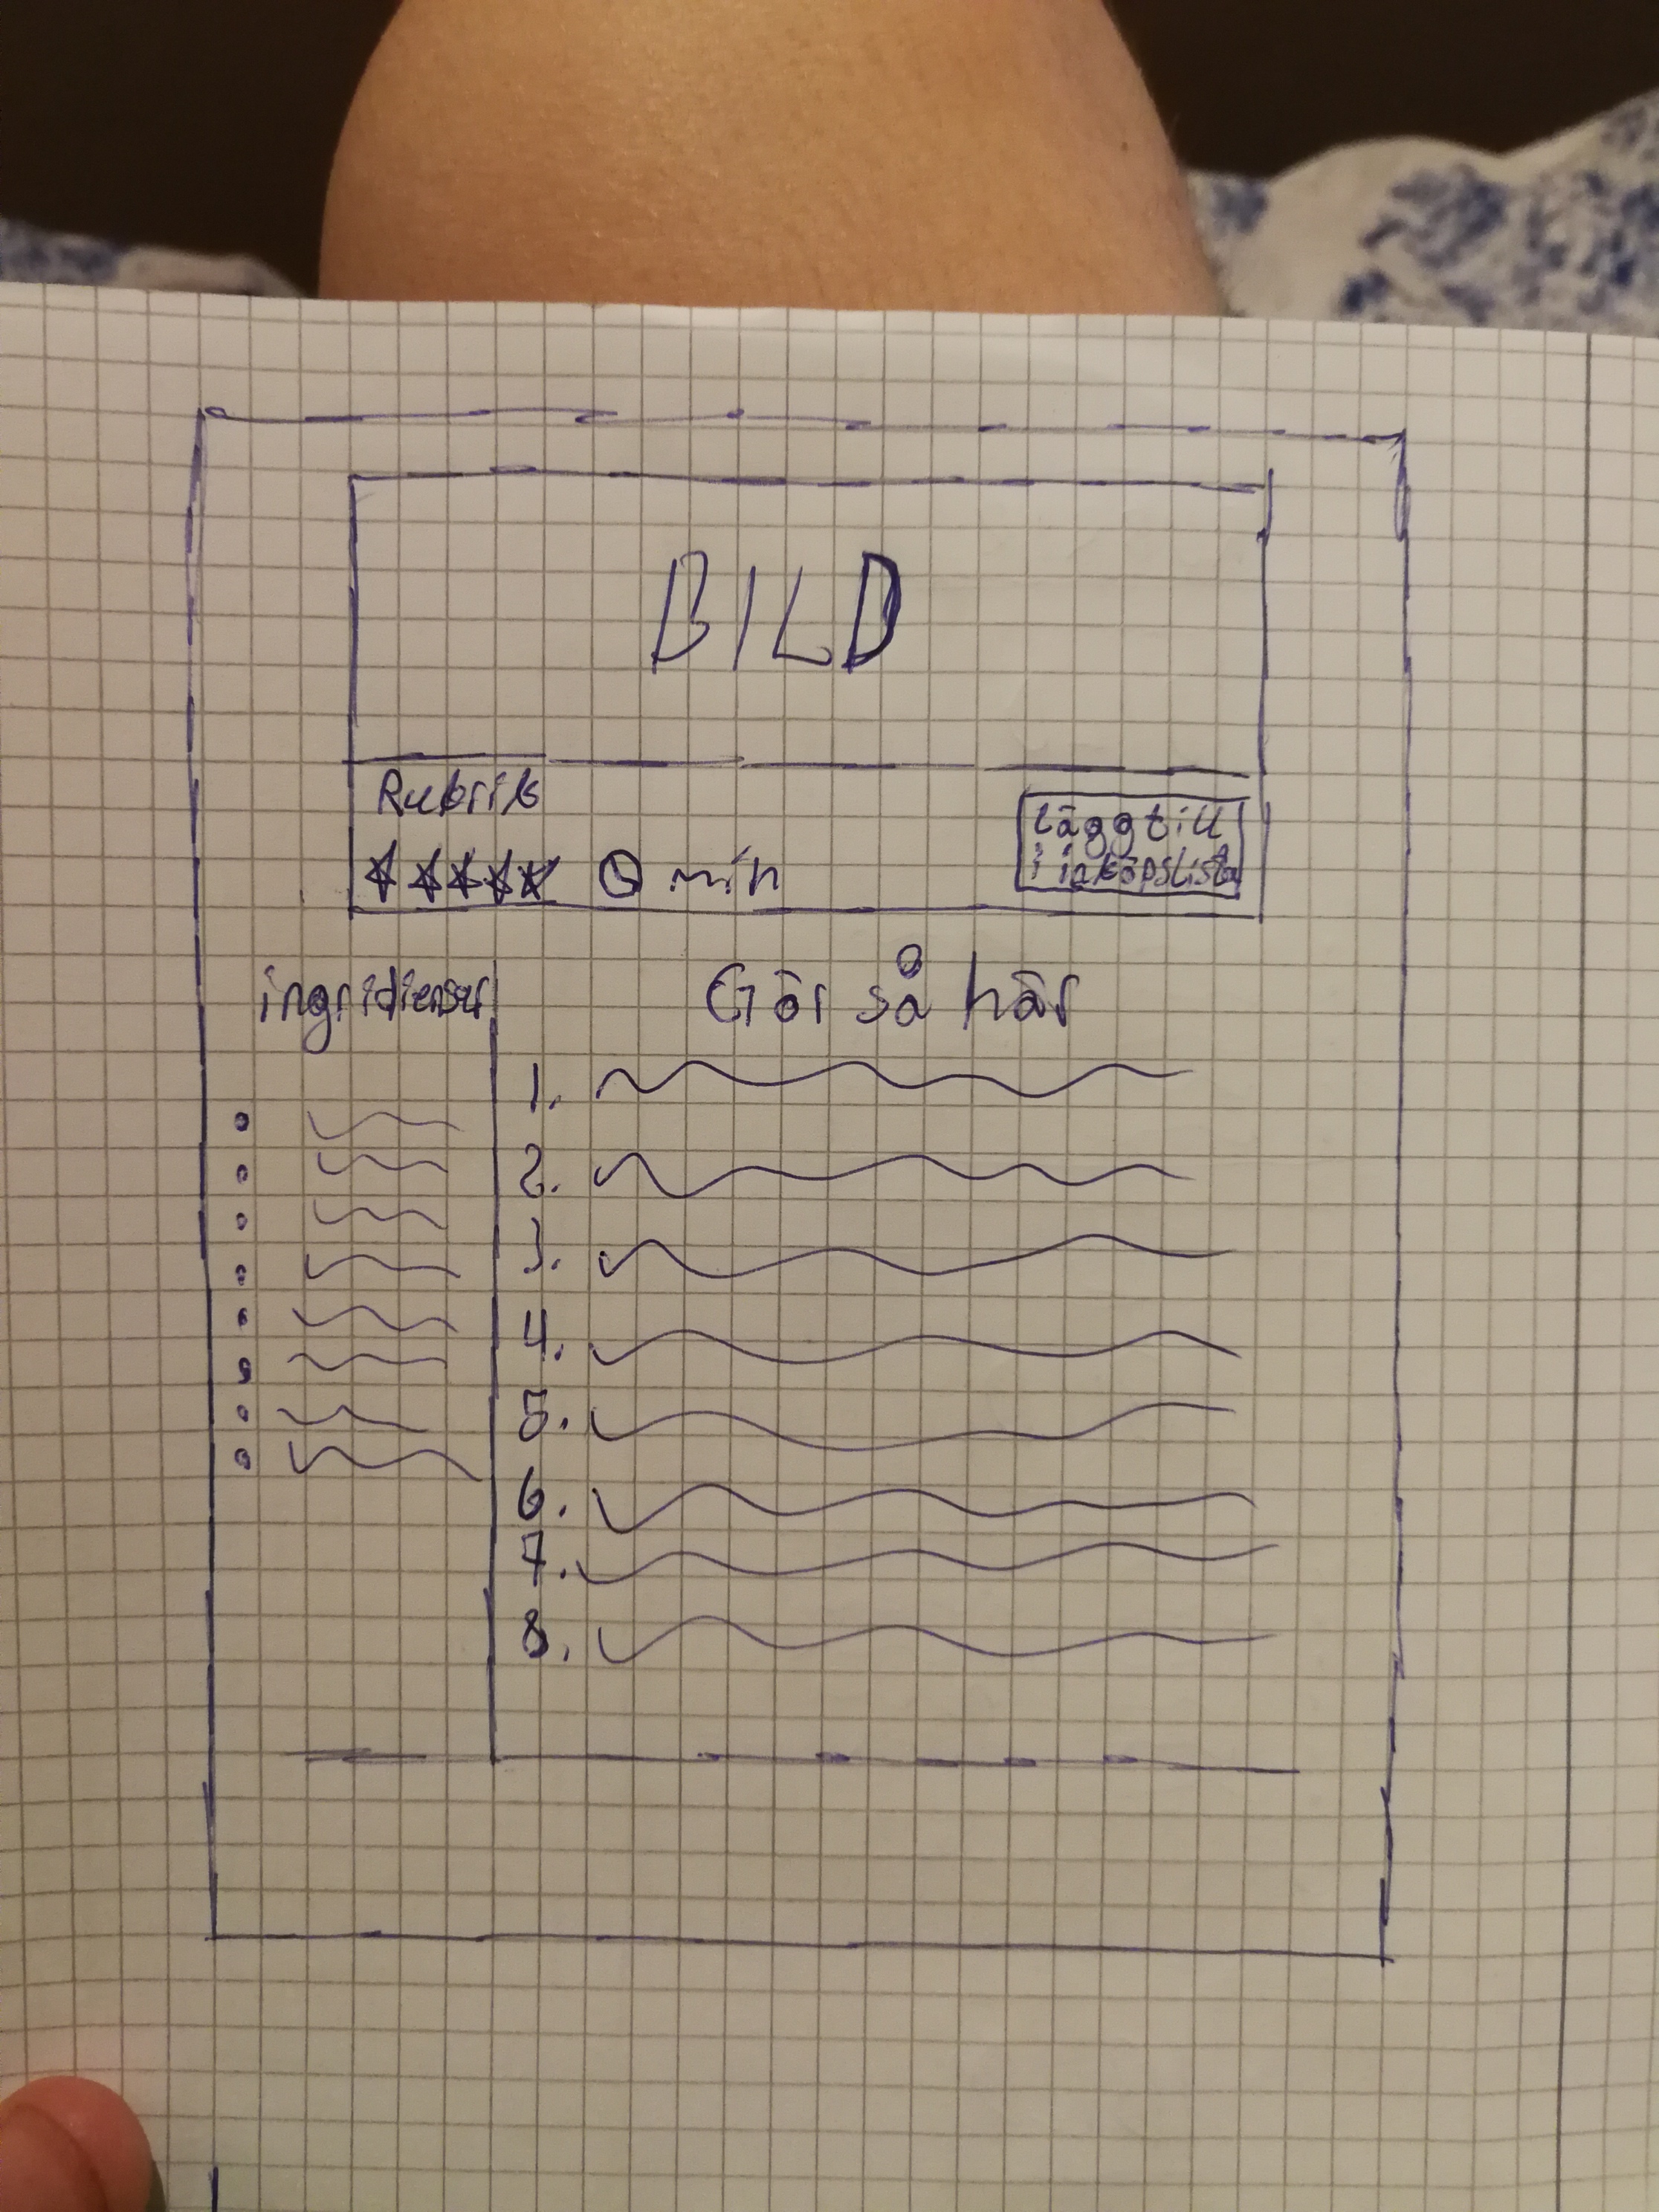 BILD
Rubrik
min
Lägg till
i inköpslista
ingridienser
Gör så här
1.
2.
3.
4.
5.
6.
7.
8.